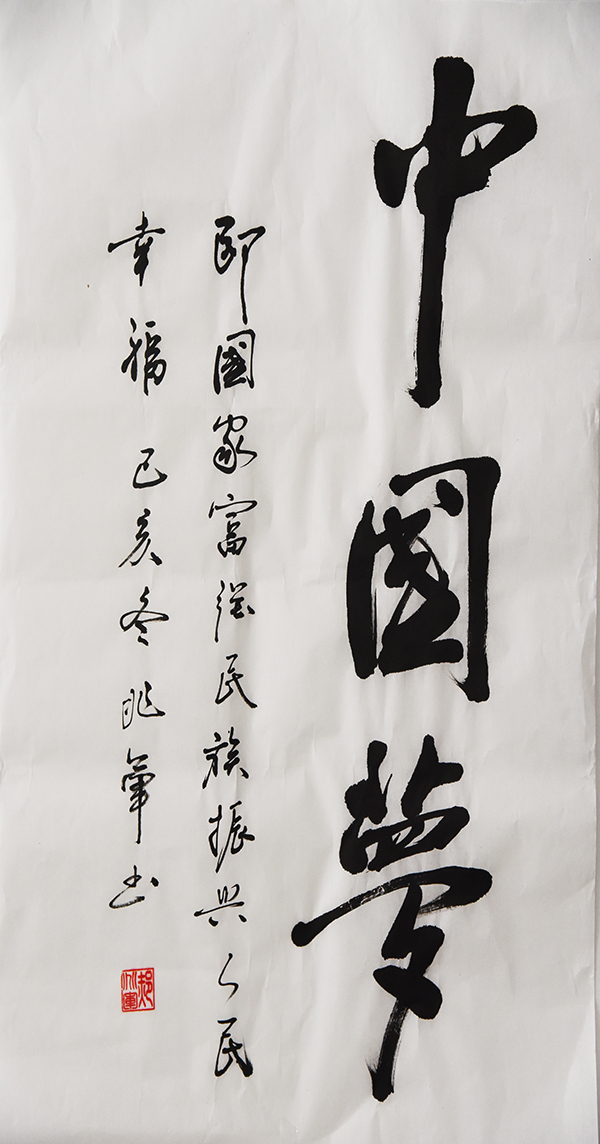 中國夢
即國家富强民族振興人民
幸福 己亥冬 兆軍书